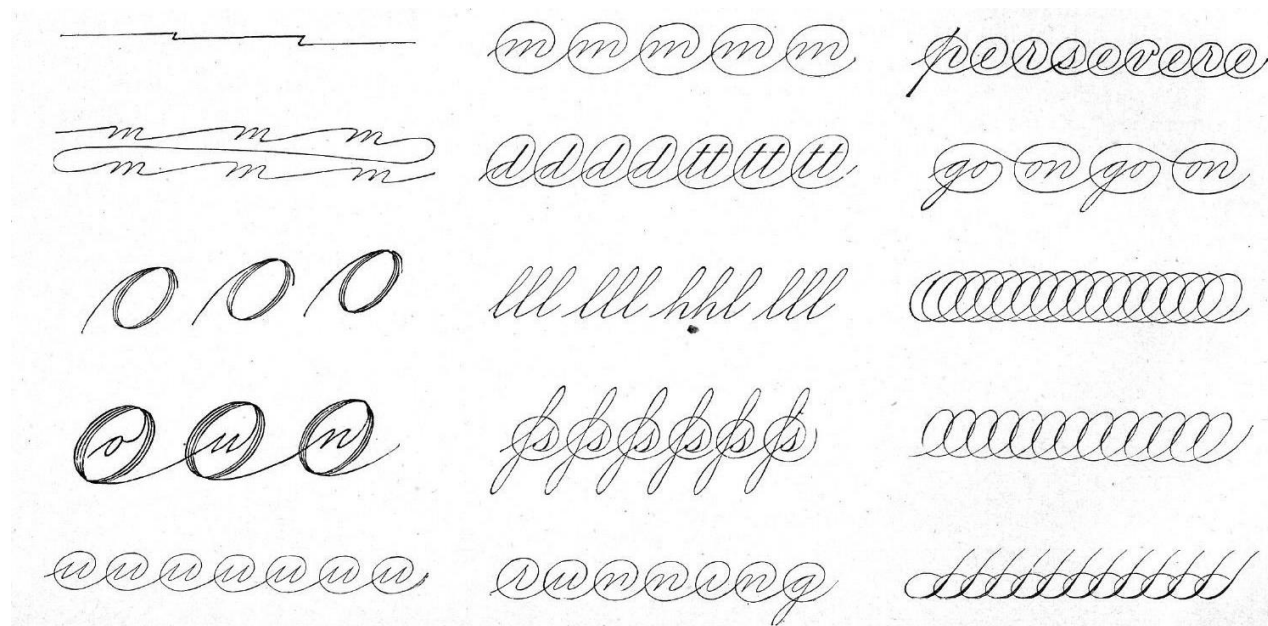 m m m
m m m
O O O
o u n
u u u u u u u
m m m m m
d d d d tt tt tt
lll lll hhl lll
fs fs fs fs fs fs
running
persevere
go on go on